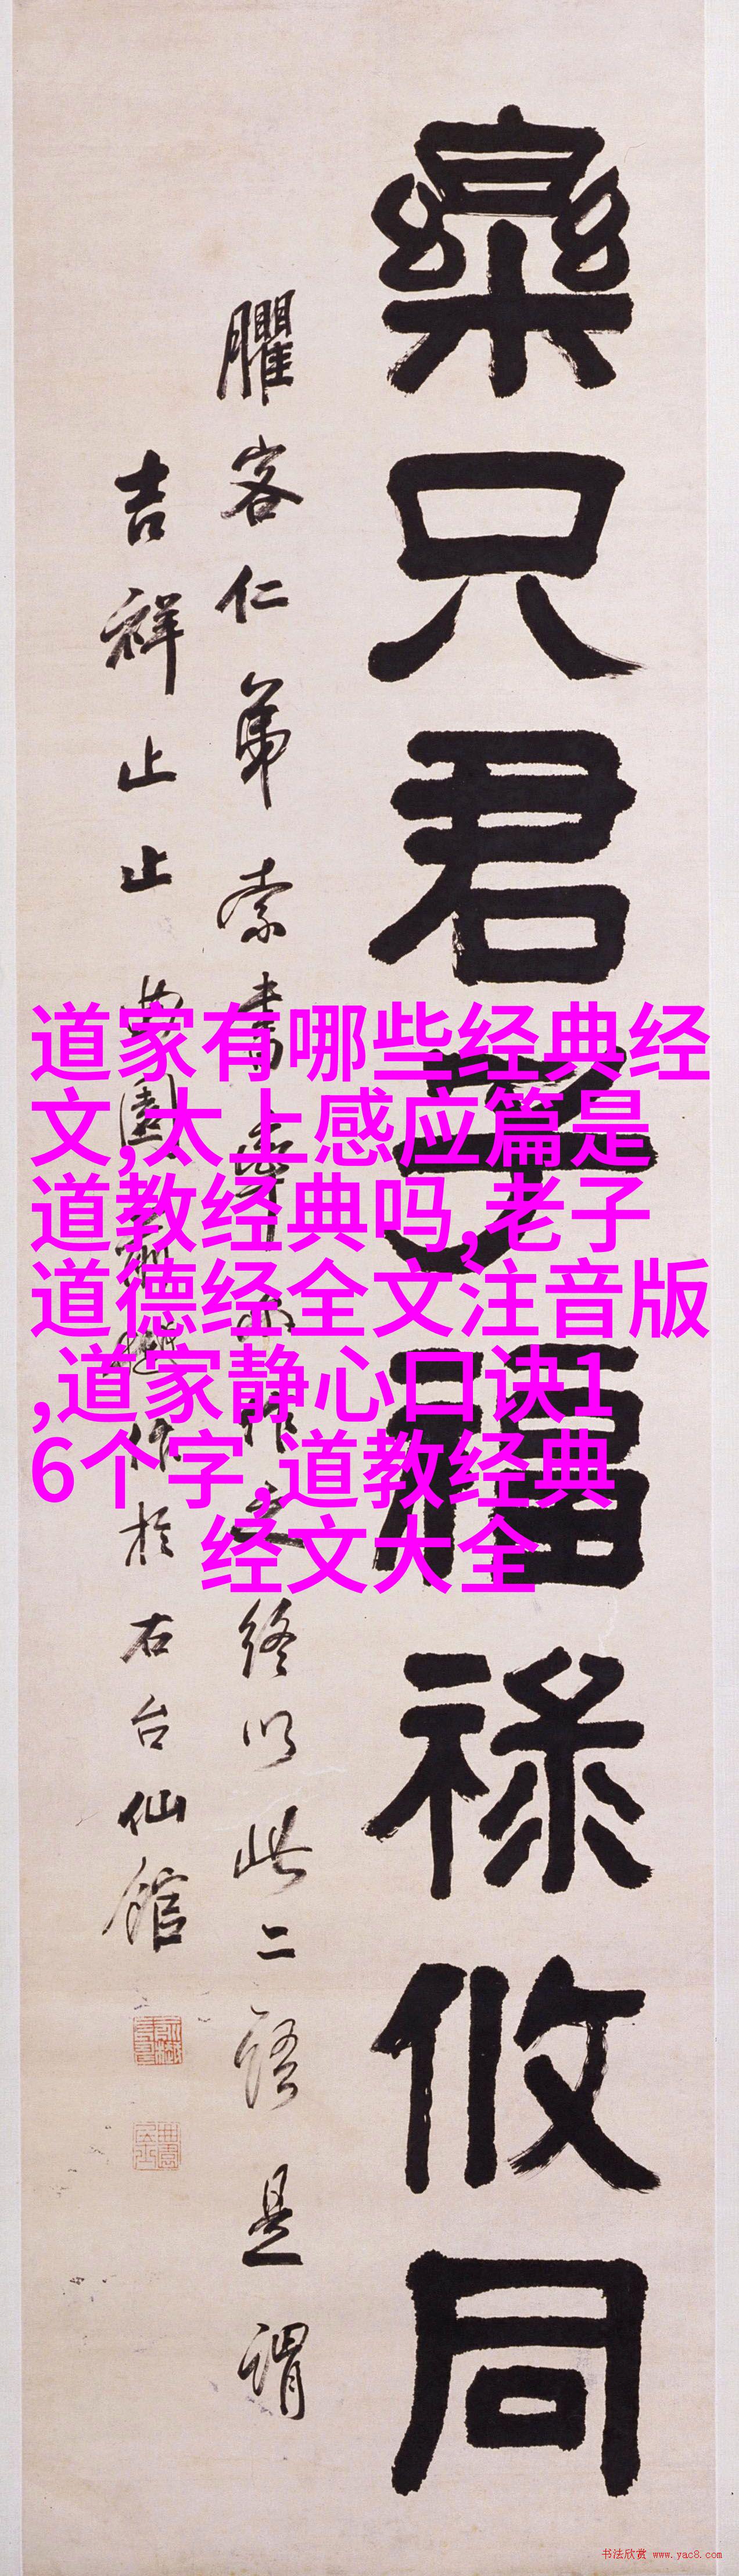 樂只君子福祿攸同
臞客仁弟索書
終以此二語是謂
吉祥止止
於右台仙館
道家有哪些经典经
文,太上感应篇是
道教经典吗,老子
道德经全文注音版
,道家静心口诀1
6个字,道教经典
经文大全
书法欣赏 www.yac8.com